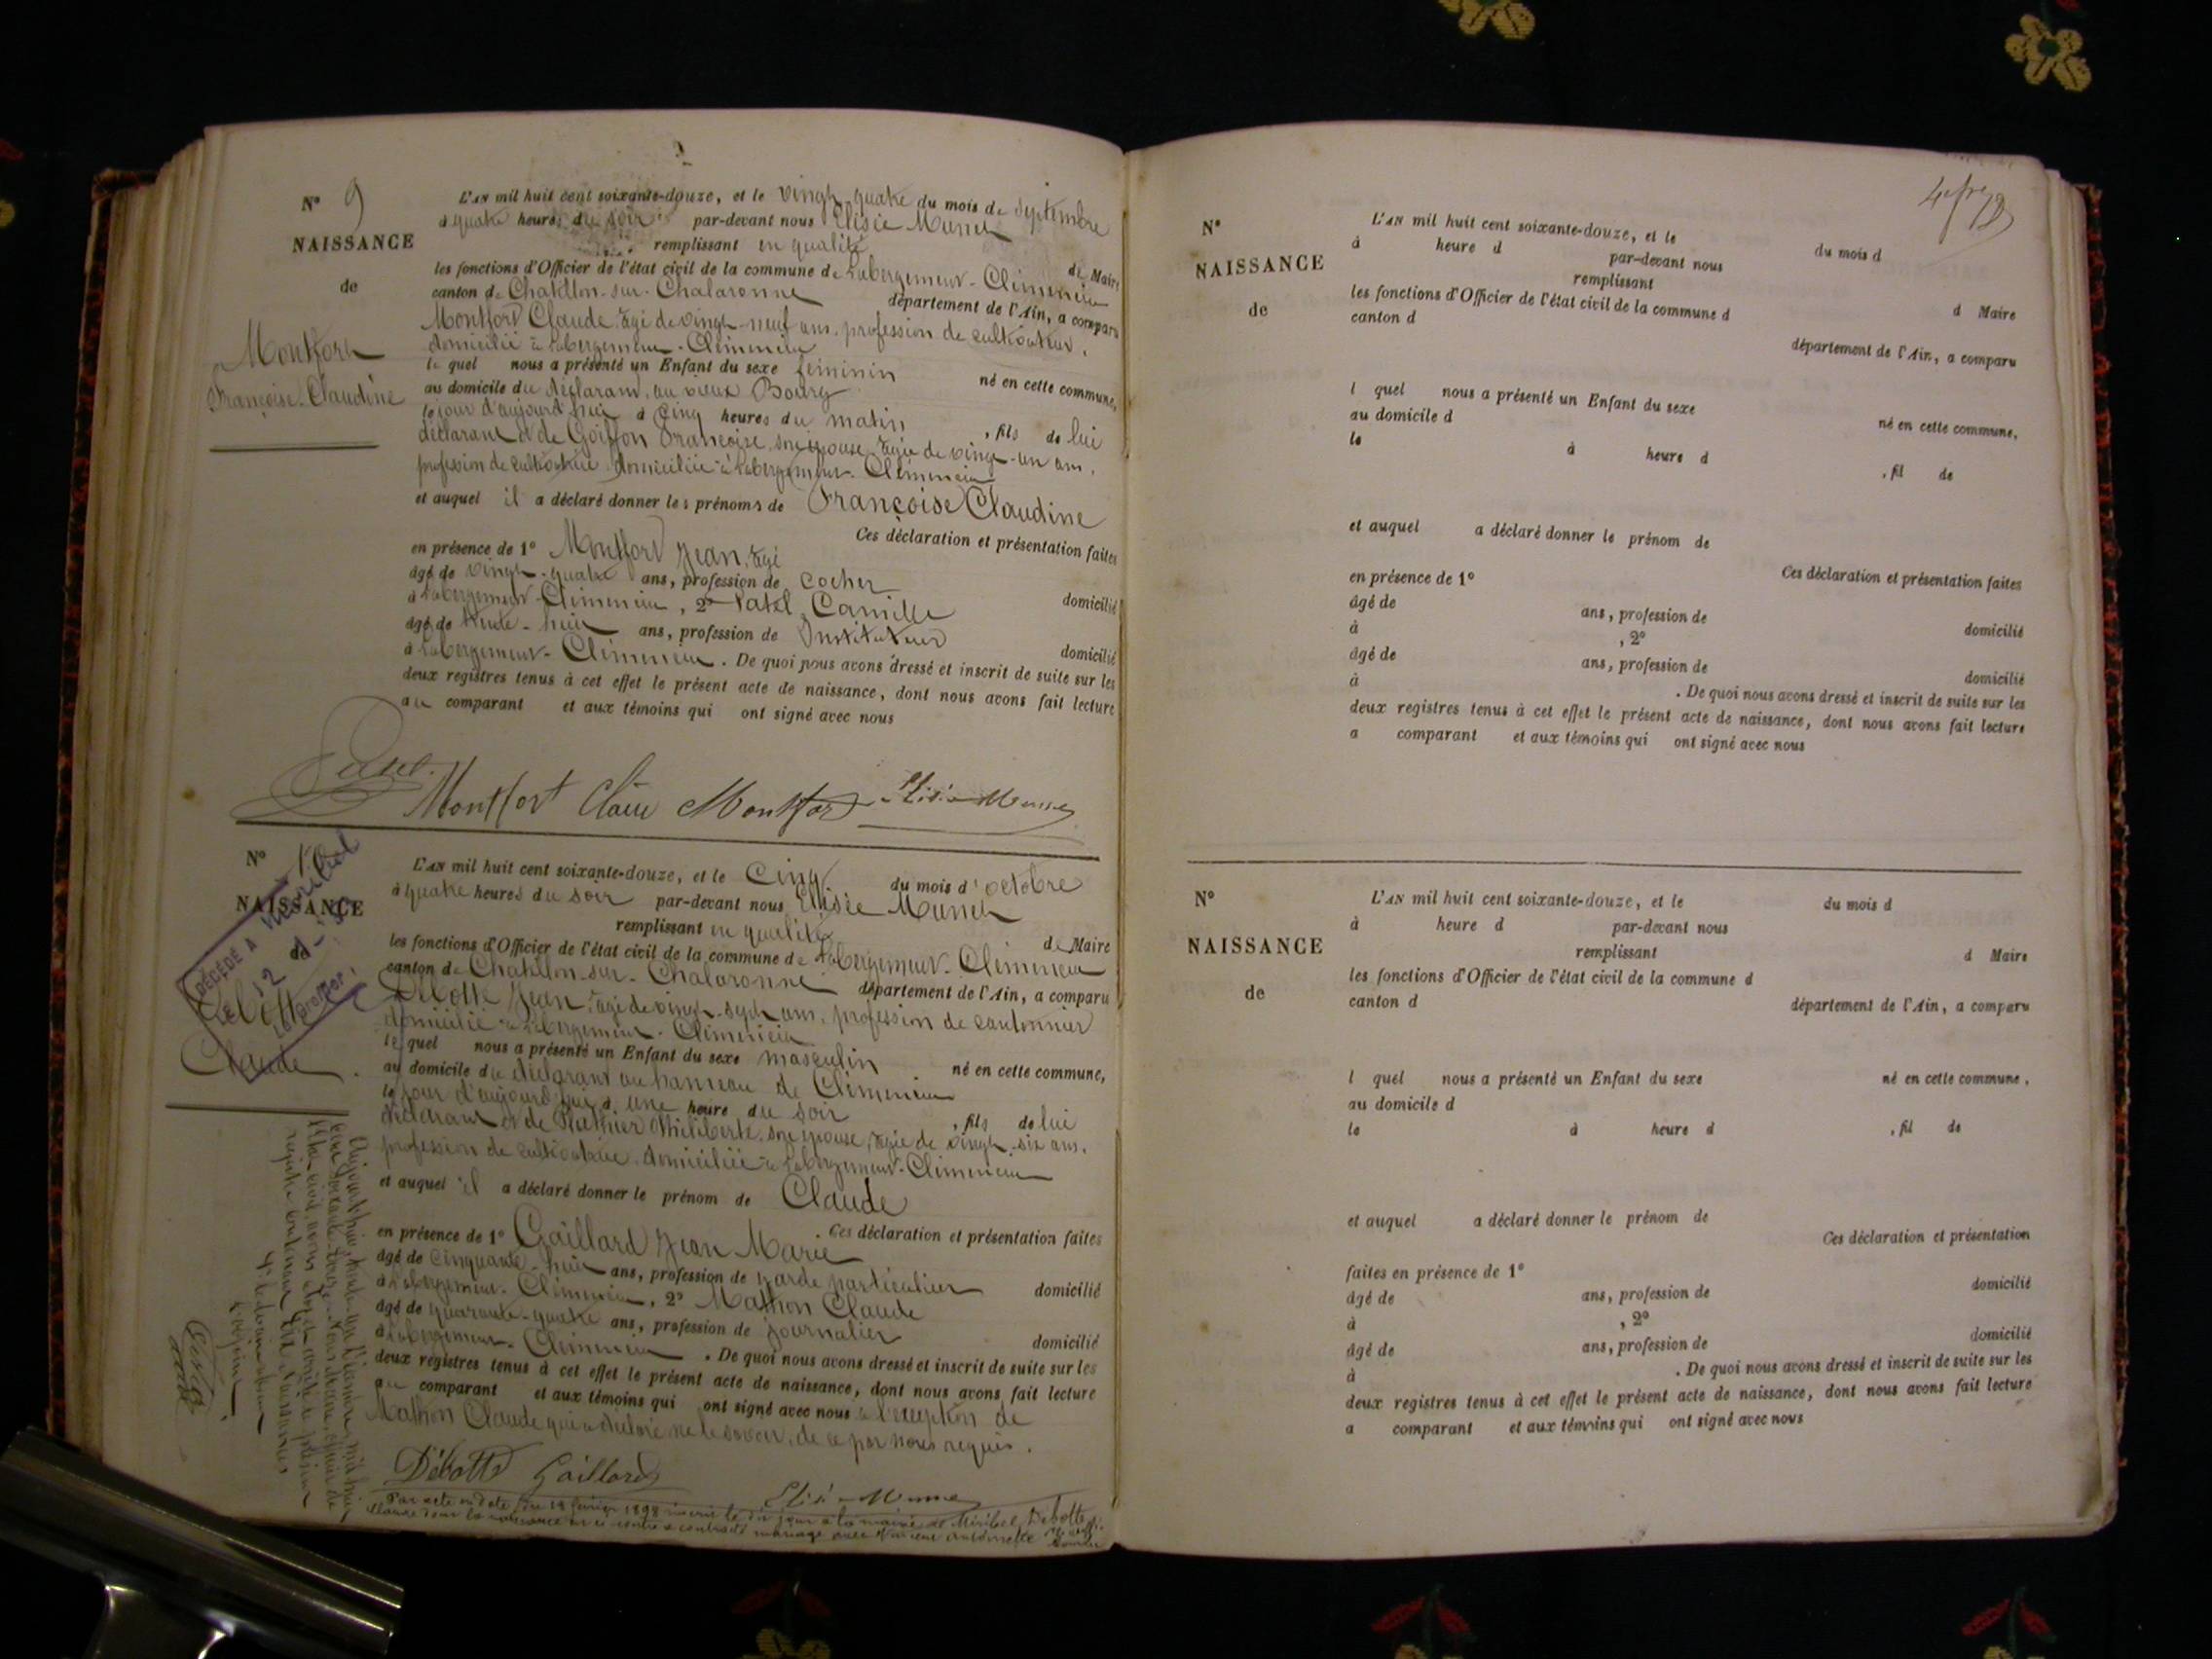 N° 9
NAISSANCE
de
Montfort
Françoise Claudine
L'AN mil huit cent soixante-douze, et le vingt quatre du mois de Septembre
à quatre heures du soir par-devant nous Elisée Munet
remplissant en qualité
de Maire
les fonctions d'Officier de l'état civil de la commune de Labergement-Clémencia
canton de Chatillon-sur-Chalaronne département de l'Ain, a comparu
Montfort Claude, âgé de vingt-neuf ans, profession de cultivateur,
domicilié à Labergement-Clémencia
lequel nous a présenté un Enfant du sexe féminin né en cette commune,
au domicile du déclarant, au vieux Bourg
le jour d'aujourd'hui à cinq heures du matin, fils de lui
déclarant et de Goiffon Françoise, son épouse, âgée de vingt-un ans,
profession de cultivatrice, domiciliée à Labergement-Clémencia
et auquel il a déclaré donner les prénoms de Françoise Claudine
Ces déclaration et présentation faites
en présence de 1° Montfort Jean, âgé
âgé de vingt-quatre ans, profession de cocher domicilié
à Labergement-Clémencia, 2° Patel Camille
âgé de trente-huit ans, profession de Instituteur domicilié
à Labergement-Clémencia. De quoi nous avons dressé et inscrit de suite sur les
deux registres tenus à cet effet le présent acte de naissance, dont nous avons fait lecture
au comparant et aux témoins qui ont signé avec nous
Patel Montfort Claude Montfort Elisée Munet
N° 10
NAISSANCE
de
Debotte
Claude
DÉCÉDÉ A Miribel
LE 12
L'AN mil huit cent soixante-douze, et le Cinq du mois d'octobre
à quatre heures du soir par-devant nous Elisée Munet
remplissant en qualité
de Maire
les fonctions d'Officier de l'état civil de la commune de Labergement-Clémencia
canton de Chatillon-sur-Chalaronne département de l'Ain, a comparu
Debotte Jean, âgé de vingt-sept ans, profession de cantonnier
domicilié à Labergement-Clémencia
lequel nous a présenté un Enfant du sexe masculin né en cette commune,
au domicile du déclarant au hameau de Clémencia
le jour d'aujourd'hui à une heure du soir, fils de lui
déclarant et de Philiberte, son épouse, âgée de vingt-six ans,
profession de cultivatrice, domiciliée à Labergement-Clémencia
et auquel il a déclaré donner le prénom de Claude
Ces déclaration et présentation faites
en présence de 1° Gaillard Jean Marie
âgé de cinquante-huit ans, profession de garde particulier domicilié
à Labergement-Clémencia, 2° Mathon Claude
âgé de quarante-quatre ans, profession de journalier domicilié
à Labergement-Clémencia. De quoi nous avons dressé et inscrit de suite sur les
deux registres tenus à cet effet le présent acte de naissance, dont nous avons fait lecture
au comparant et aux témoins qui ont signé avec nous à l'exception de
Mathon Claude qui a déclaré ne le savoir, de ce par nous requis.
Debotte Gaillard Elisée Munet
Par acte en date du 19 février 1898 inscrit le dit jour à la mairie de Miribel, Debotte
Claude dont la naissance est ci-contre a contracté mariage avec Antoinette
Aujourd'hui trente-un Décembre mil huit
cent soixante-douze. Nous Maire, officier de
l'état civil, avons clos et arrêté le présent
registre contenant dix naissances
N°
NAISSANCE
de
L'AN mil huit cent soixante-douze, et le du mois d
à heure d par-devant nous
remplissant
d Maire
les fonctions d'Officier de l'état civil de la commune d
canton d
département de l'Ain, a comparu
l quel nous a présenté un Enfant du sexe né en cette commune,
au domicile d
le à heure d , fil de
et auquel a déclaré donner le prénom de
Ces déclaration et présentation faites
en présence de 1°
âgé de ans, profession de domicilié
à , 2°
âgé de ans, profession de domicilié
à . De quoi nous avons dressé et inscrit de suite sur les
deux registres tenus à cet effet le présent acte de naissance, dont nous avons fait lecture
a comparant et aux témoins qui ont signé avec nous
N°
NAISSANCE
de
L'AN mil huit cent soixante-douze, et le du mois d
à heure d par-devant nous
remplissant d Maire
les fonctions d'Officier de l'état civil de la commune d
canton d département de l'Ain, a comparu
l quel nous a présenté un Enfant du sexe né en cette commune,
au domicile d
le à heure d , fil de
et auquel a déclaré donner le prénom de
Ces déclaration et présentation
faites en présence de 1°
âgé de ans, profession de domicilié
à , 2°
âgé de ans, profession de domicilié
à . De quoi nous avons dressé et inscrit de suite sur les
deux registres tenus à cet effet le présent acte de naissance, dont nous avons fait lecture
a comparant et aux témoins qui ont signé avec nous